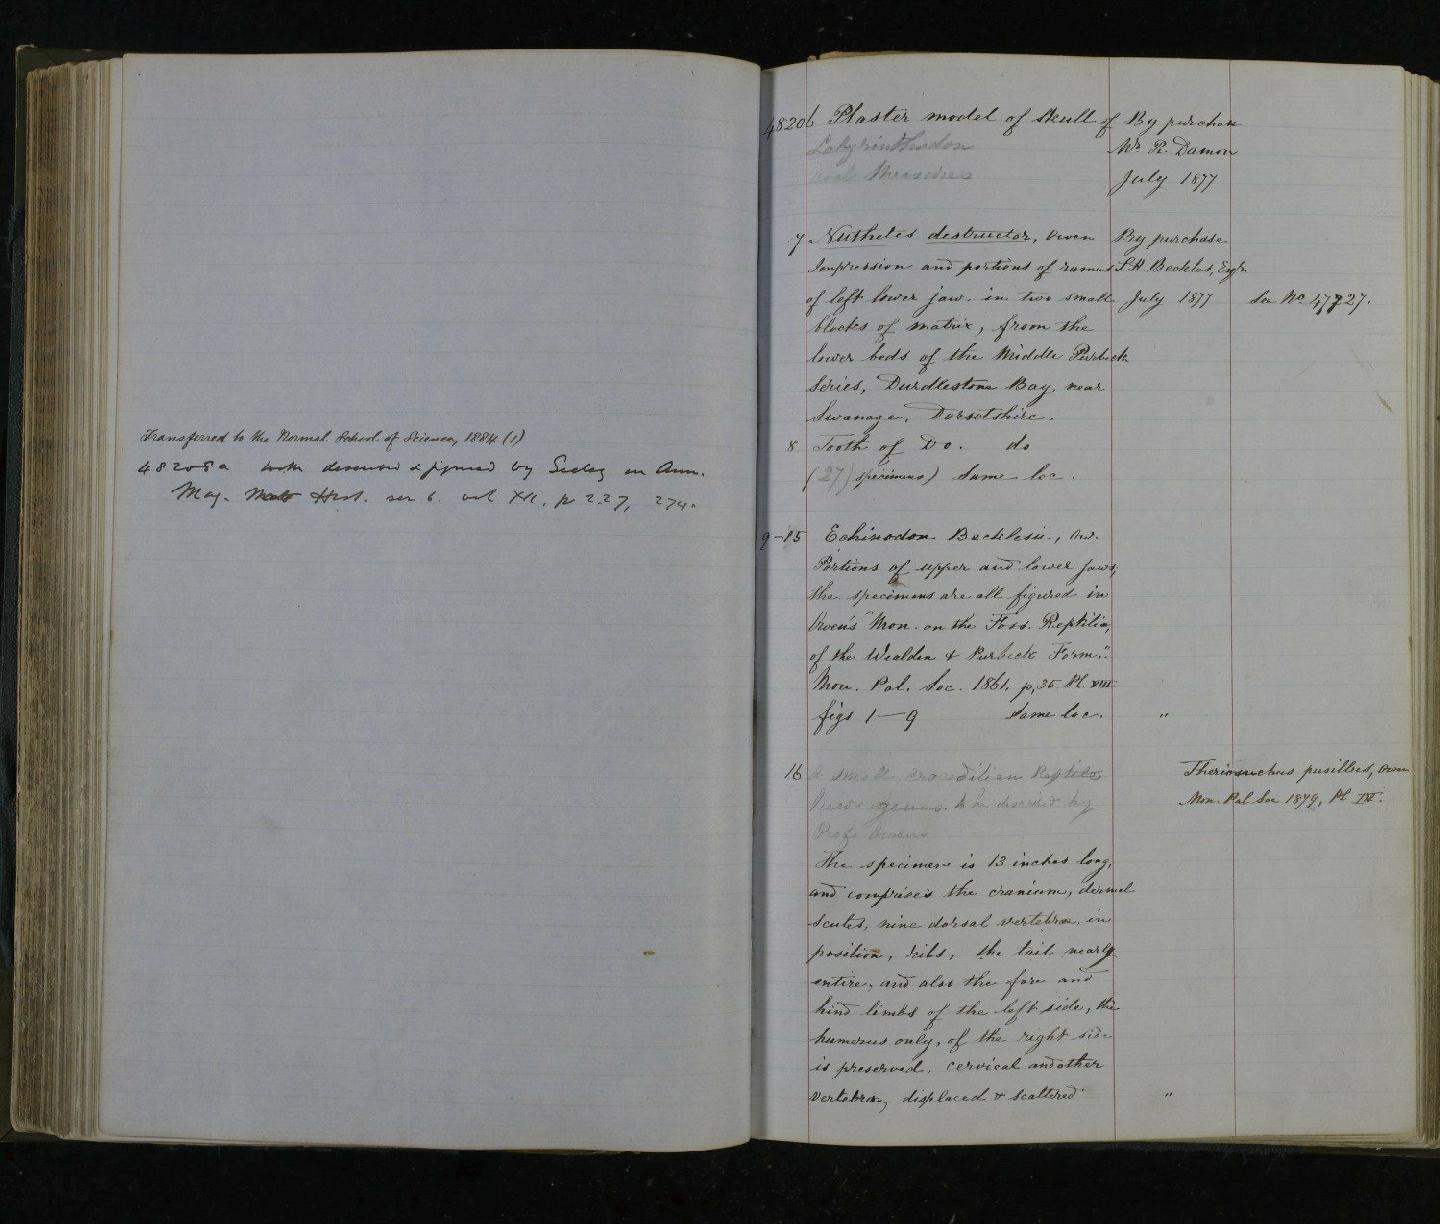 Transferred to the Normal School of Science, 1884 (1)
48208a tooth described & figured by Seeley in Ann.
Mag. Nat Hist. ser 6. vol XII. p 227, 274.
48206 Plaster model of Skull of By purchase
Labyrinthodon Mr. R. Damon
July 1877
7 Nuthetes destructor, Owen By purchase
Impression and portions of ramus S. H. Beckles, Esqr.
of left lower jaw. in two small July 1877 See No. 47727.
blocks of matrix, from the
lower beds of the Middle Purbeck
Series, Durdlestone Bay, near
Swanage, Dorsetshire.
8 Tooth of Do. do
(27) specimens) Same loc.
9-15 Echinodon Becklesii, Ow.
Portions of upper and lower jaws,
the specimens are all figured in
Owen's "Mon. on the Foss. Reptilia,
of the Wealden & Purbeck Form."
Mon. Pal. Soc. 1861. p, 35 Pl. VIII
figs 1—9 Same loc. "
16 A small crocodilian Reptile Theriosuchus pusillus, Owen
New genus. to be described by Mon. Pal Soc 1879, Pl. IV.
Prof Owen
The specimen is 13 inches long,
and comprises the cranium, dermal
Scutes, nine dorsal vertebræ, in
position, ribs, the tail nearly
entire, and also the fore and
hind limbs of the left side, the
humerus only, of the right side
is preserved. cervical and other
vertebræ, displaced & scattered "